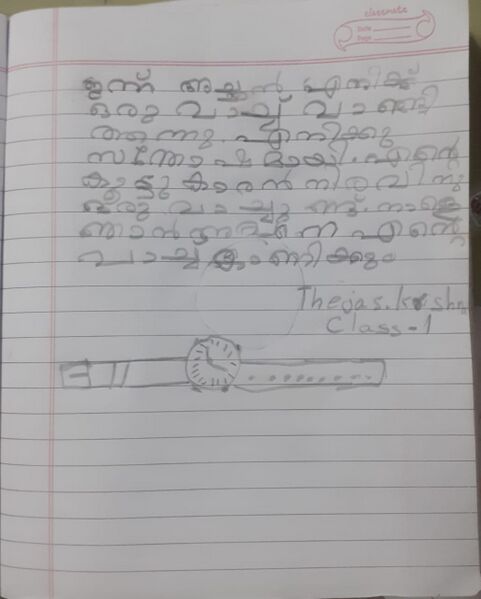 classmate
Date
Page
ഇന്ന് അച്ഛൻ എനിക്ക്
ഒരു വാച്ച് വാങ്ങി
തന്നു. എനിക്കു
സന്തോഷമായി. എന്റെ
കൂട്ടുകാരൻ നിരവിനു
ഒരു വാച്ചു ണ്ട്. നാളെ
ഞാൻ അവനെ എന്റെ
വാച്ച് കാണിക്കും
Thejas.krishn
Class-1